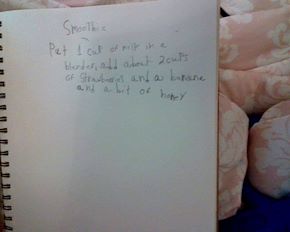 Smoothie
Put 1 cut of milk in a
blender, add about 2 cuts
of strawberries and a banana
and a bit of honey